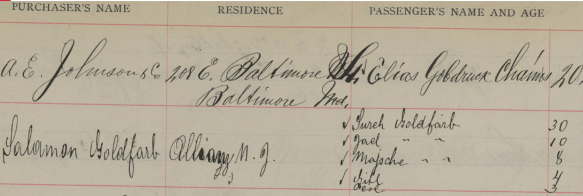 PURCHASER'S NAME RESIDENCE PASSENGER'S NAME AND AGE
A. E. Johnson & Co 208 E. Baltimore St. Elias Chaim 20
Baltimore Md.
Salamon Goldfarb Alliany, N. J. Sureh Goldfarb 30
" " 10
Majsche " " 8
4
3